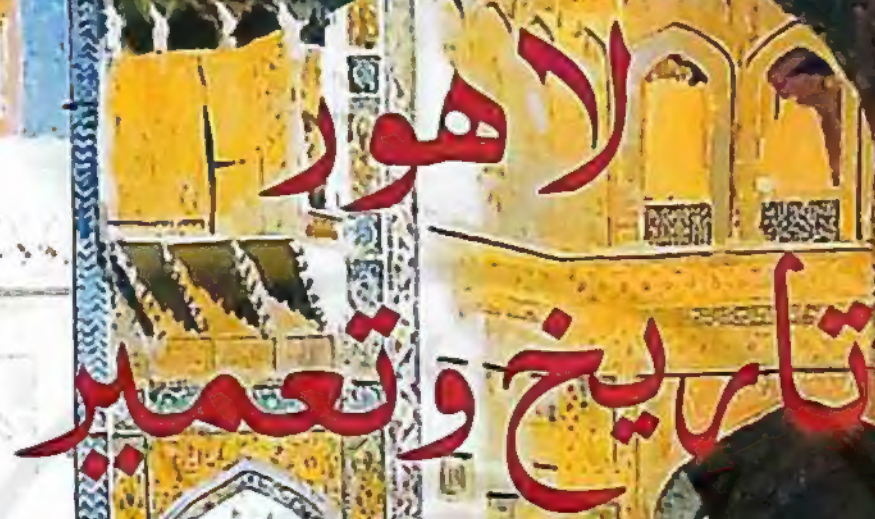 لاهور
تاریخ و تعمیر